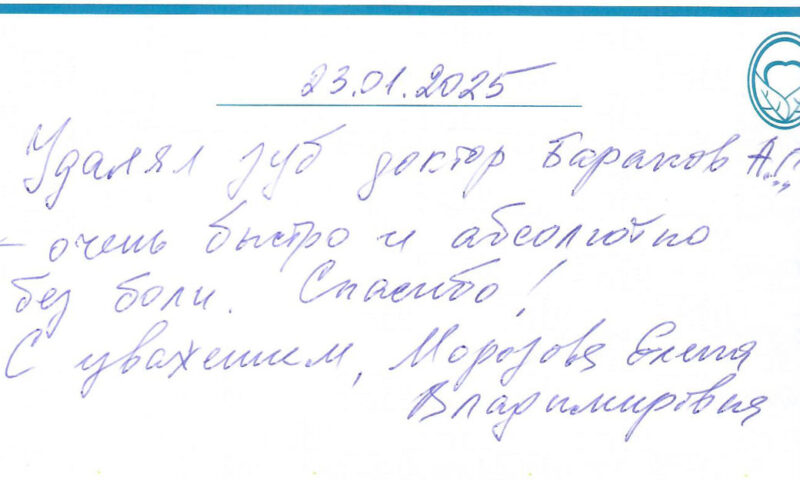 23.01.2025
Удалял зуб доктор Бараков А.Г.
– очень быстро и абсолютно
без боли. Спасибо!
С уважением, Морозова Елена
Владимировна